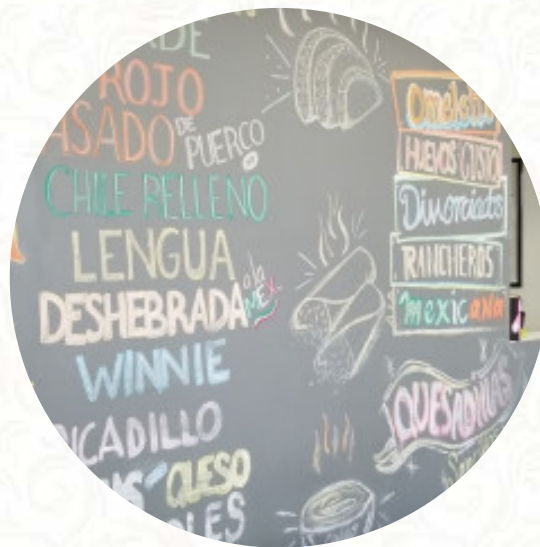 ROJO
ASADO DE PUERCO
CHILE RELLENO
LENGUA
DESHEBRADA a la MEX
WINNIE
PICADILLO
QUESO
Omelette
HUEVOS GUSTO
Divorciados
RANCHEROS
mexicana
QUESADILLAS